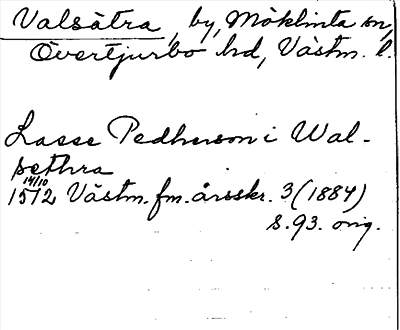 Valsätra, by, Möklinta sn,
Övertjurbo hd, Västm. l.
Lasse Pedhersson i Wal-
sethra
14/10
1572 Västm. fm. årsskr. 3 (1884)
s. 93. orig.